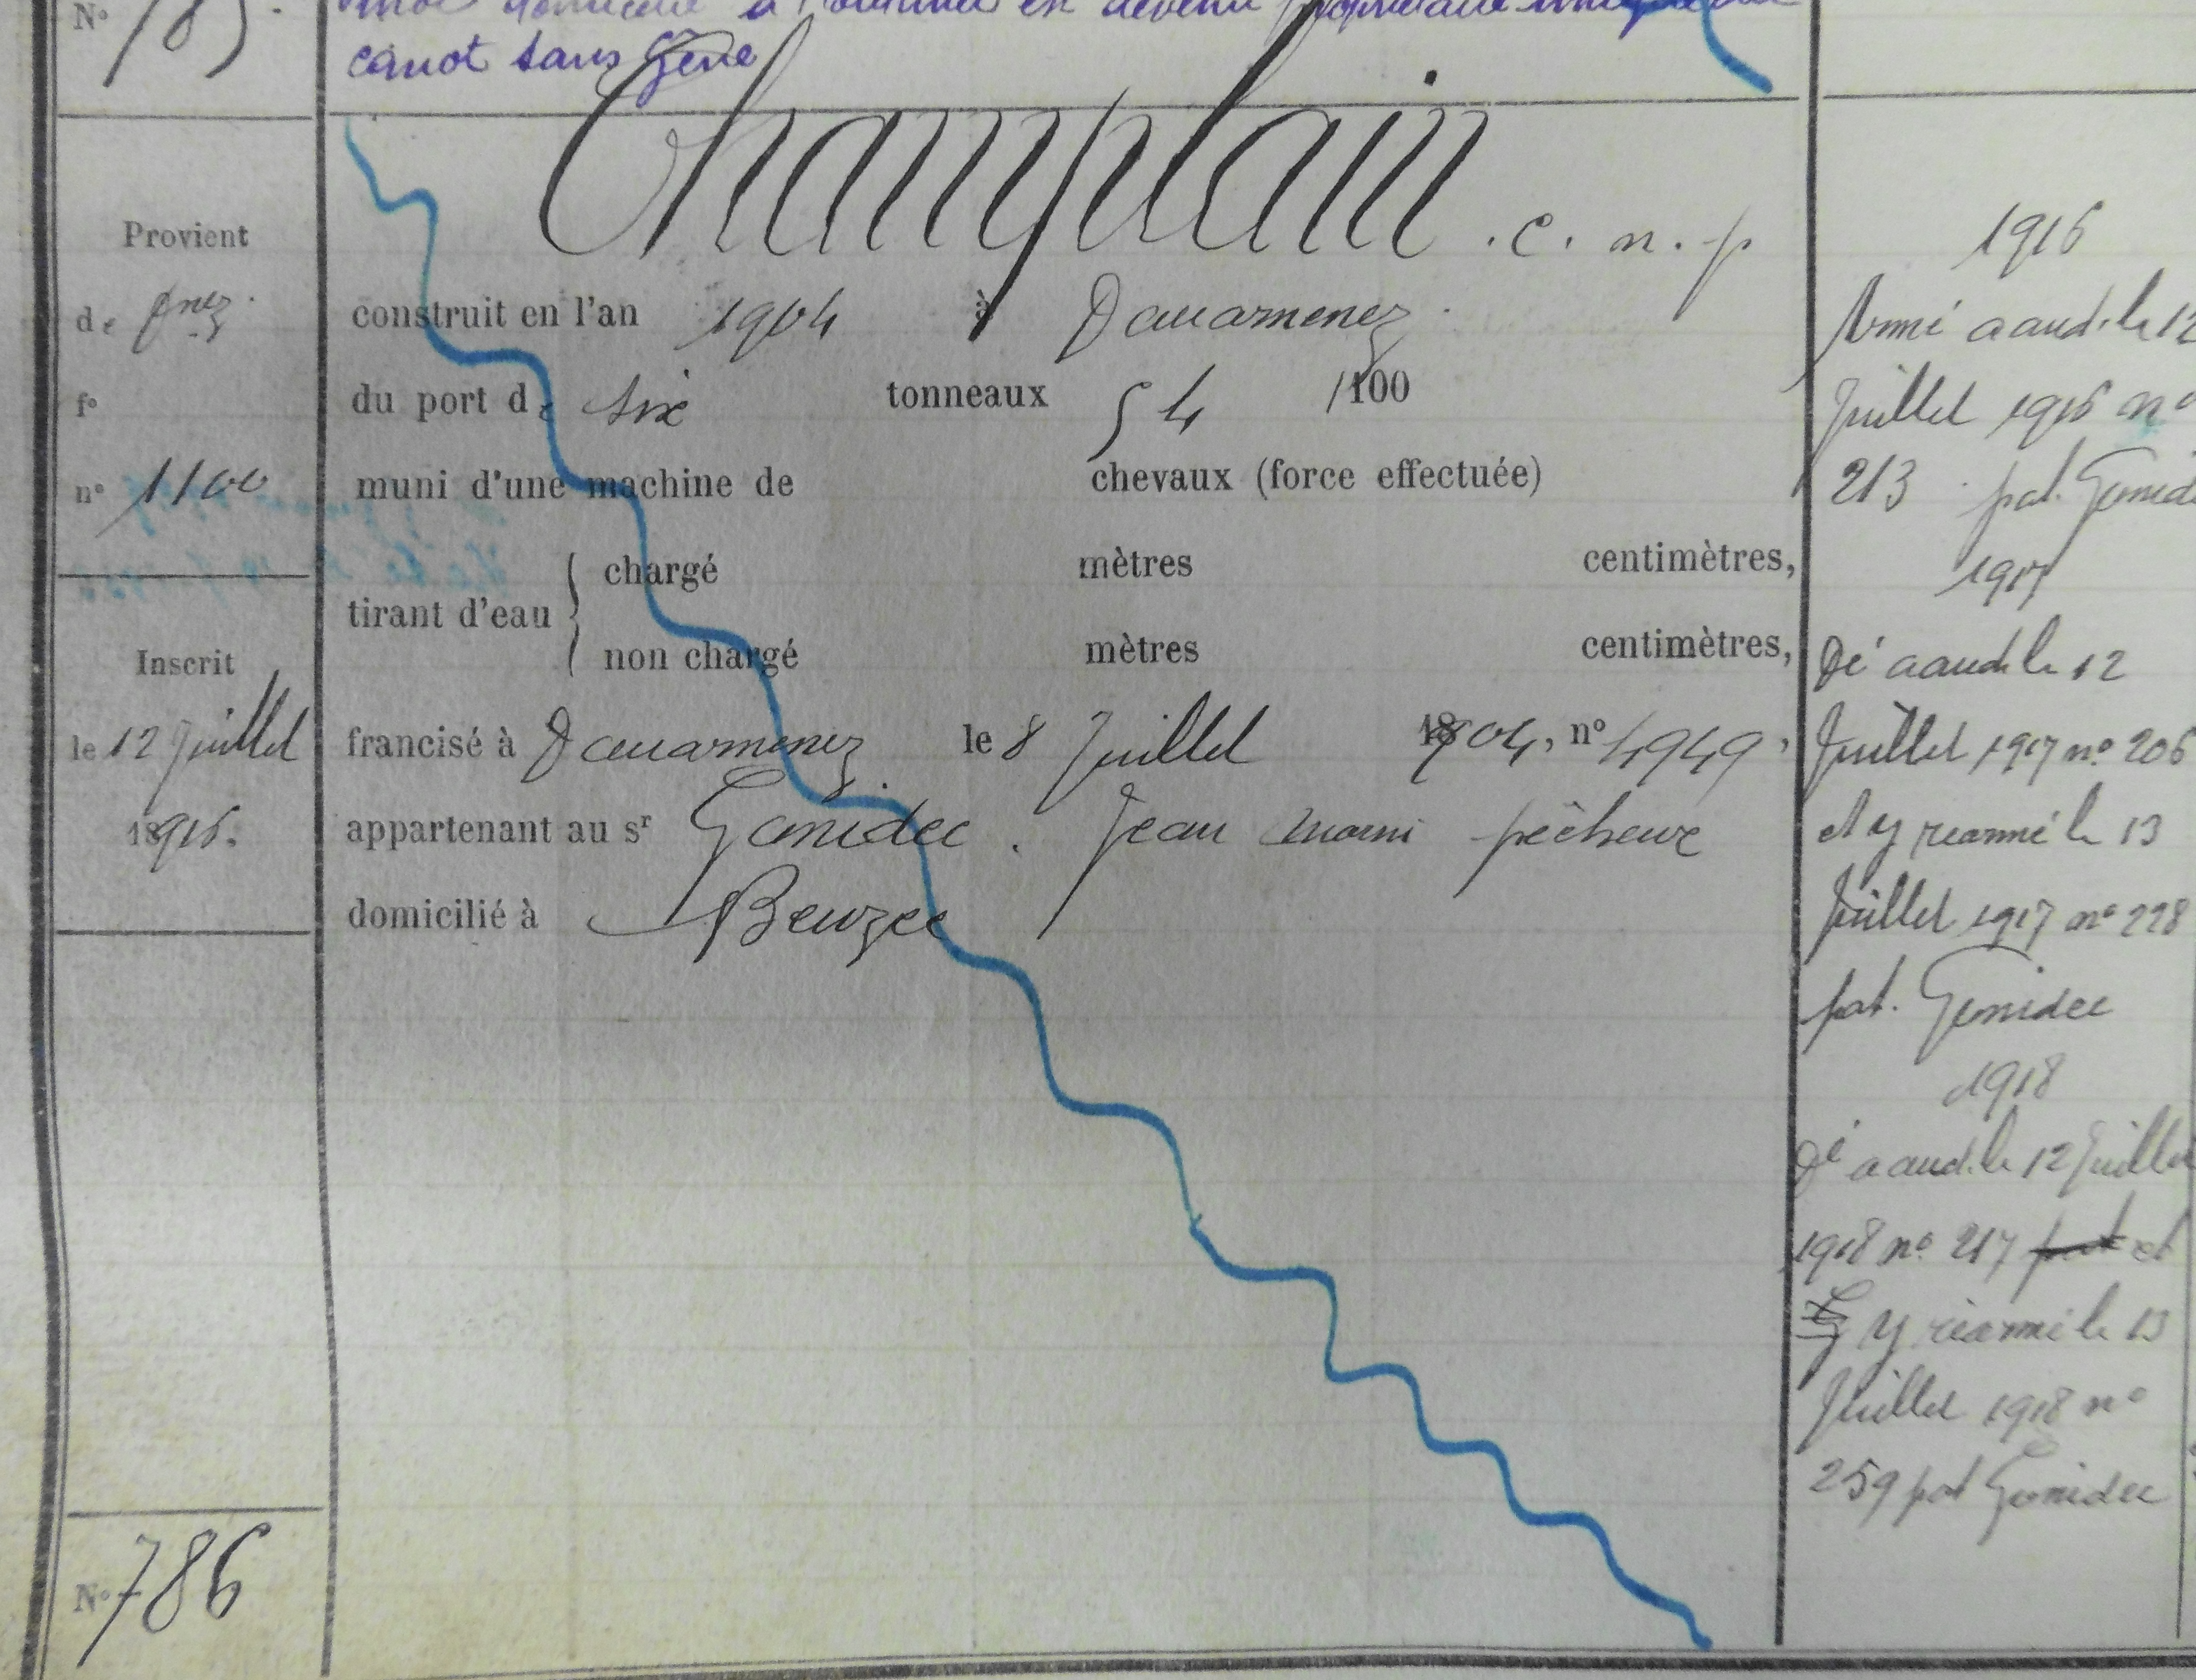 N° 785.
canot sans Gêne
Champlain . c. n. p
Provient
de Dnez.
f°
n° 1100
construit en l'an 1904 à Douarnenez.
du port de six tonneaux 54 /100
muni d'une machine de chevaux (force effectuée)
tirant d'eau { chargé mètres centimètres,
non chargé mètres centimètres,
Inscrit
le 12 Juillet
1916.
francisé à Douarnenez le 8 Juillet 1904, n° 4949,
appartenant au sr Gonidec. Jean Marie pêcheur
domicilié à Beuzec
N° 786
1916
Armé a aud. le 12
Juillet 1916 n°
213 pat. Gonidec
1917
Dé a aud. le 12
Juillet 1917 n° 206
et y réarmé le 13
Juillet 1917 n° 228
pat. Gonidec
1918
Dé a aud. le 12 Juillet
1918 n° 217 et
y réarmé le 13
Juillet 1918 n°
259 pat Gonidec